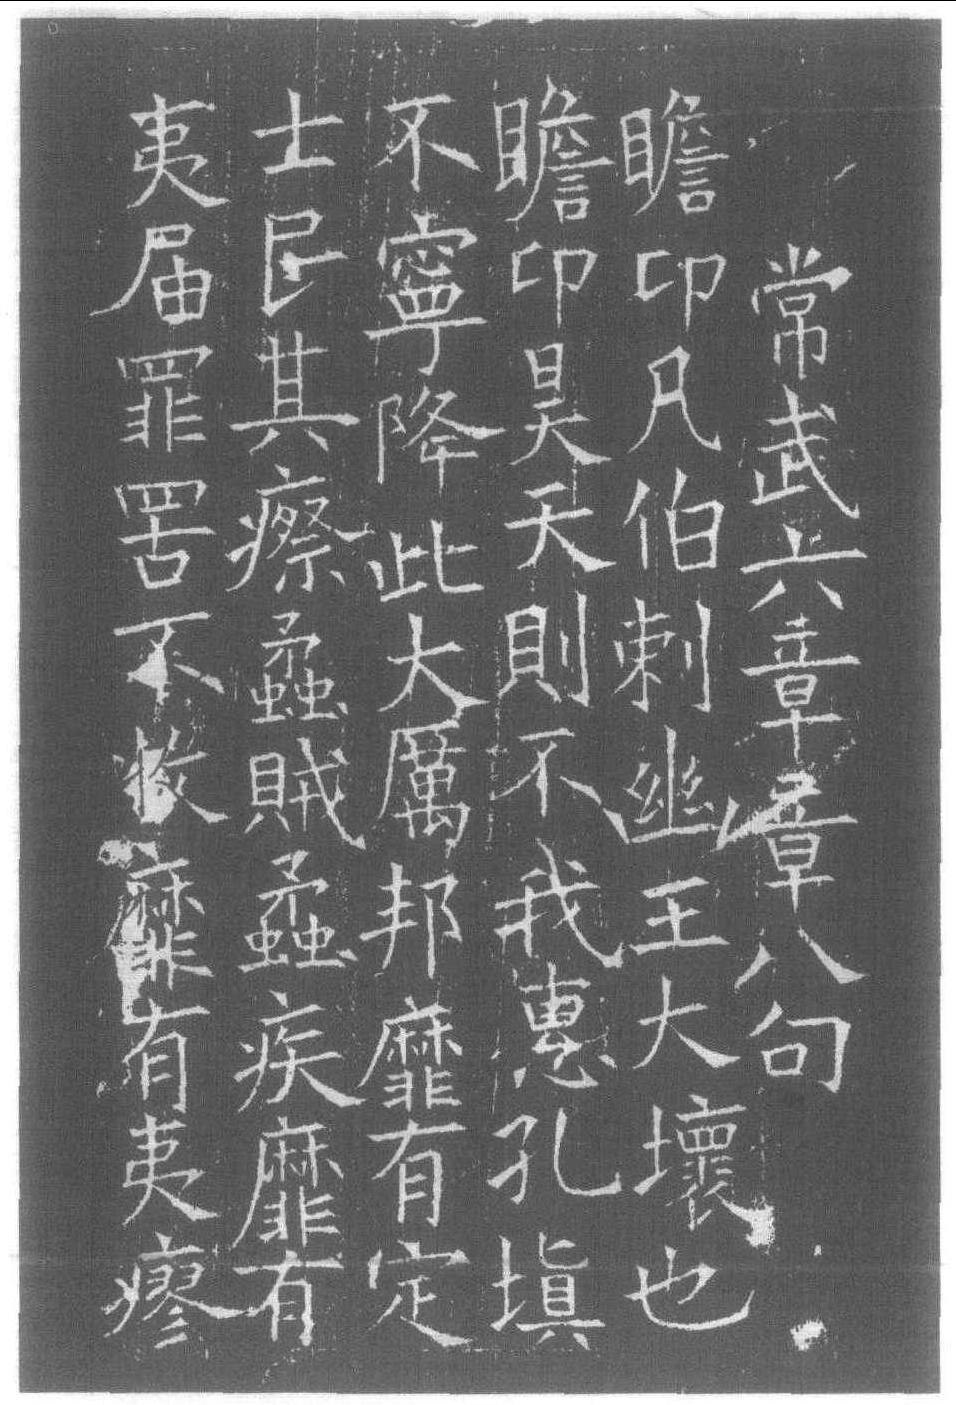 常武六章章八句
瞻卬凡伯刺幽王大壞也
瞻卬昊天則不我惠孔填
不寧降此大厲邦靡有定
士民其瘵蟊賊蟊疾靡有
夷届罪罟不收靡有夷瘳